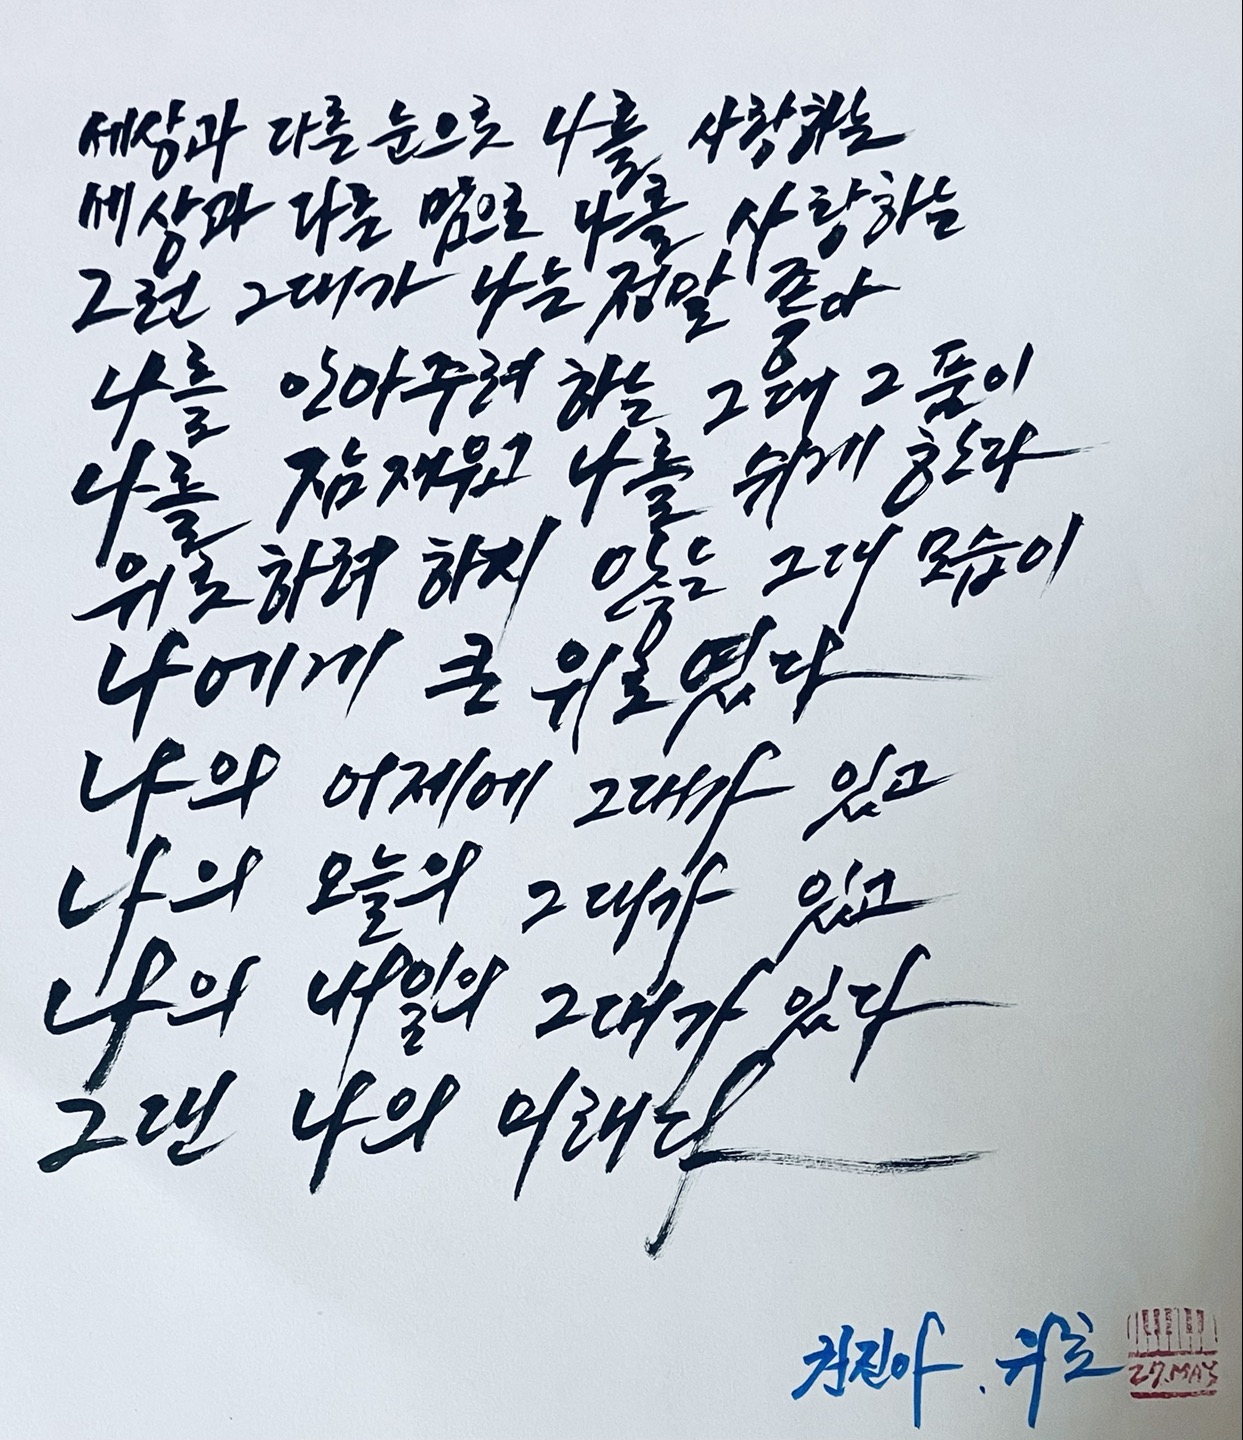 세상과 다른 눈으로 나를 사랑하는
세상과 다른 맘으로 나를 사랑하는
그런 그대가 나는 정말 좋아
나를 안아주려 하는 그대 그 품이
나를 잠재우고 나를 쉬게 한다
위로하려 하지 않는 그대 모습이
나에게 큰 위로였다
나의 어제에 그대가 있고
나의 오늘의 그대가 있고
나의 내일의 그대가 있다
그댄 나의 미래다
권진아. 위로
27.MAY